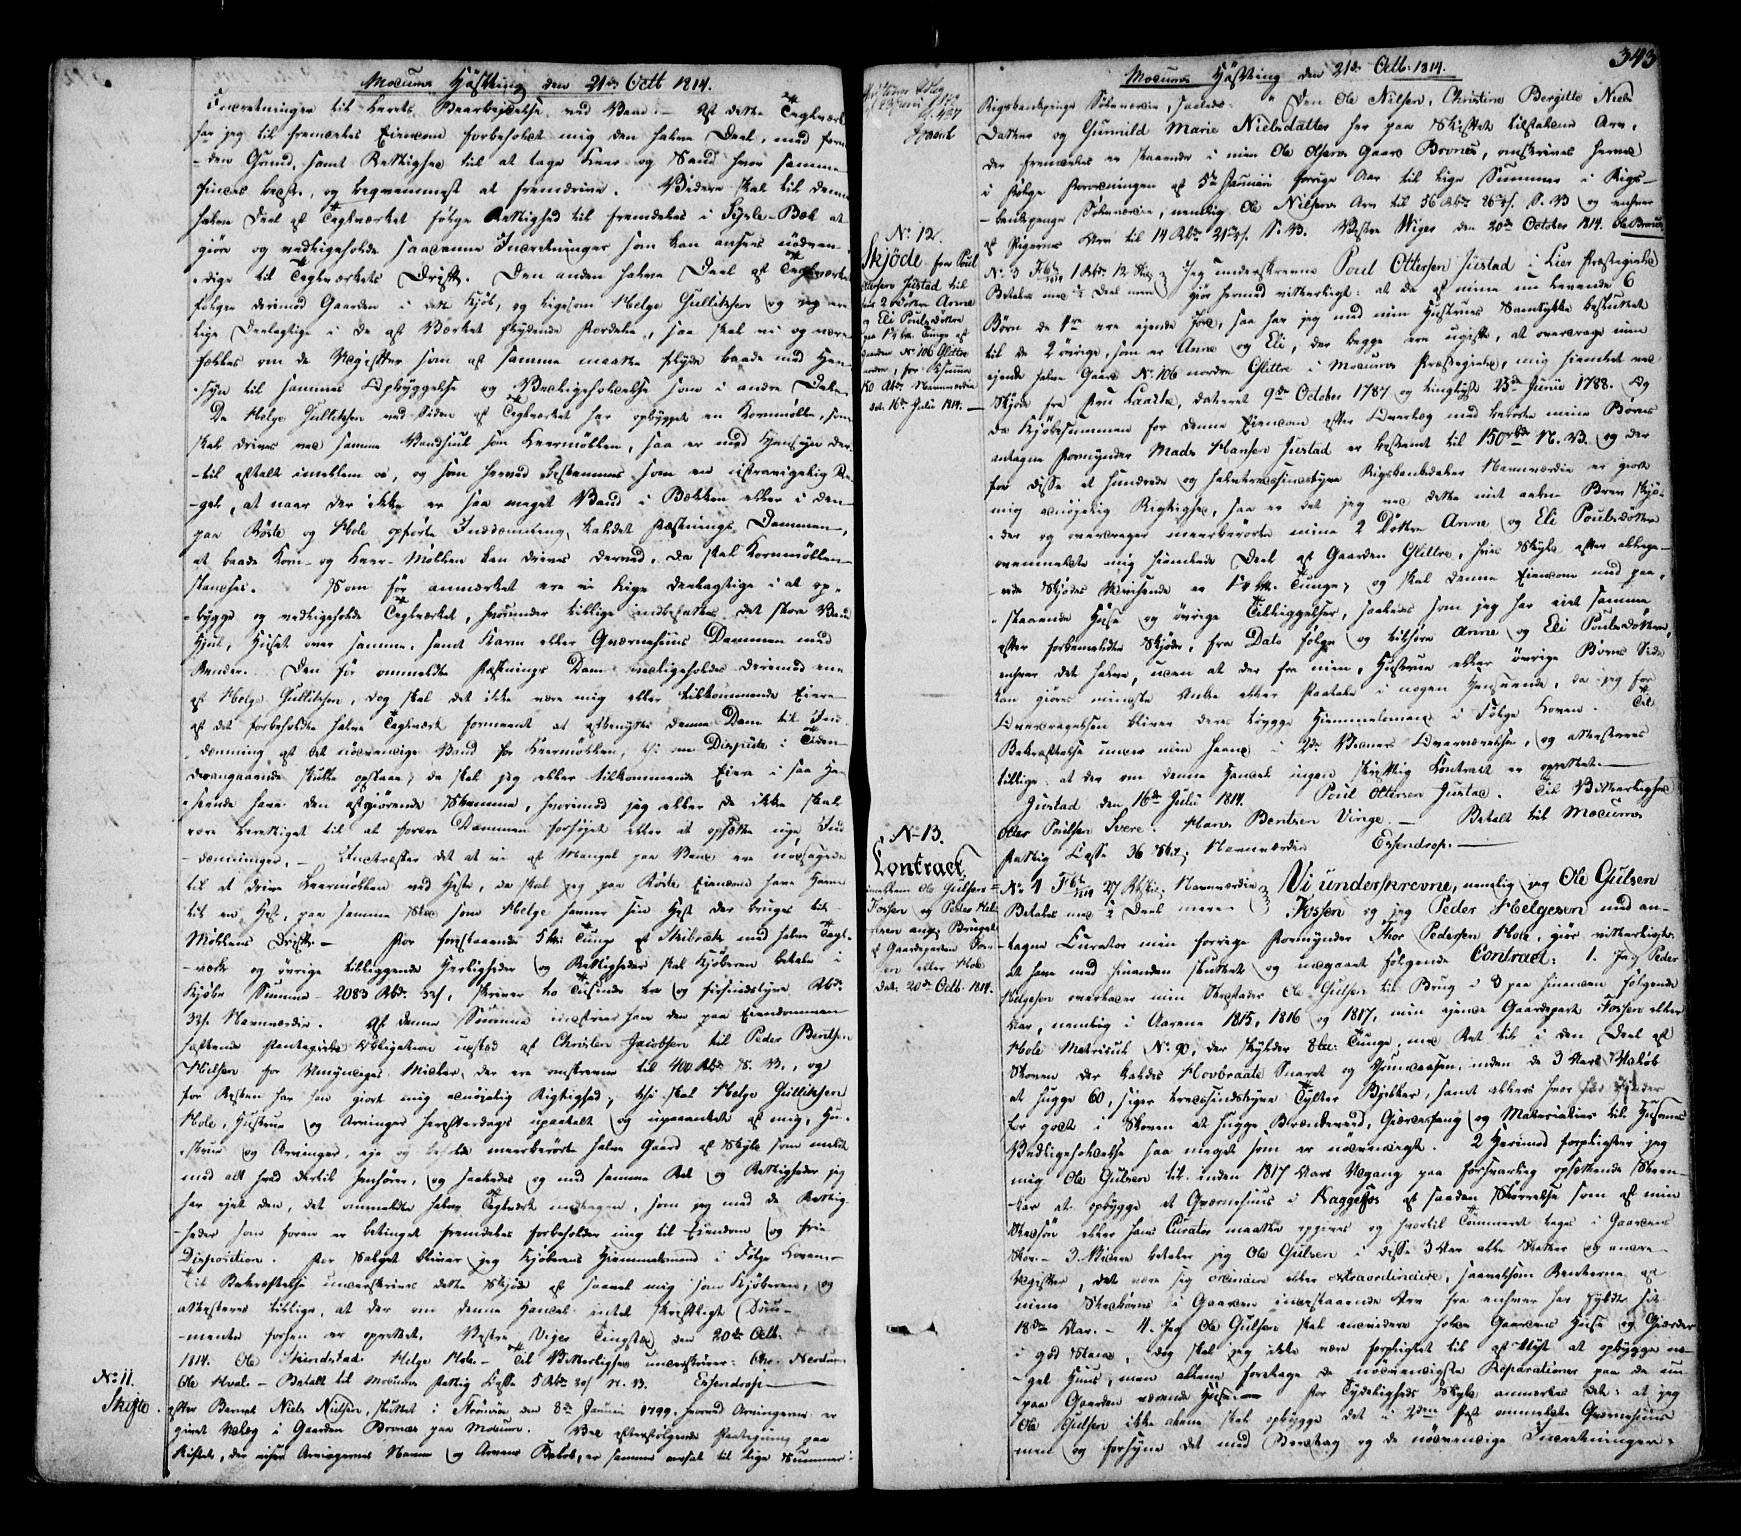 Modums Høstting den 21de Octb 1814.
Indretninger til Leerets Bearbeidelse ved Vand. – Af dette Teglværk
har jeg til fremdeles Eiendom forbeholdt mig den halve Deel, med for-
-den Grund, samt Rettighed til at tage Leer og Sand hvor samme
findes bedst, og beqvemmest at fremdrive. Videre skal til denne
halve Deel af Teglværket følge Rettighed til fremdeles i Sysle-Bæk at
giøre og vedligeholde saadanne Indretninger som kan ansees nødven-
-dige til Teglværkets Drift. Den anden halve Deel af Teglværket
følger derimod Gaarden i dette Kjøb, og ligesom Helge Gulliksen og jeg ere
lige Deelagtige i de af Værket flydende Fordele, saa skal vi og være
fælles om de Udgifter som af samme maatte flyde baade med Hen-
-syn til sammes Opbyggelse og Vedligeholdelse som i andre Dele.
Da Helge Gulliksen ved Siden af Teglværket har opbygget en Kornmølle, som
skal drives med samme Vandhiul som Leermøllen, saa er med Hensyn der-
-til aftalt imellem os, og som herved bestemmes som en ufravigelig Re-
-gel, at naar der ikke er saa meget Vand i Bækken eller i den
paa Røste og Hole opførte Inddæmning, kaldet Fæstnings Dammen,
at baade Korn- og Leer-Møllen kan drives derved, da skal Kornmøllen
standses. Som før anmærket ere vi lige deelagtige i at op-
-bygge og vedligeholde Teglværket, hvorunder tillige indbefattes det store Vand
Hjul, Huset over samme, samt Karm eller Qværnehuus Dammen med
Render. Den før ommeldte Fæstnings Dam vedligeholdes derimod ene
af Helge Gulliksen, dog skal det ikke være mig eller tilkommende Eiere
af det forbeholdte halve Teglværk formeent at afbenytte denne Dam til Ind-
dæmning af det nødvendige Vand for Leermøllen, thi om Dispüte i Tiden
derangaaende skulle opstaae, da skal jeg eller tilkommende Eiere i saa Hen-
-seende have den afgiørende Stemme, hvorimod jeg eller de ikke skal
være berettiget til at fordre Dammen forhøyet eller at opsætte nye Ind-
-dæmninger. – Indtræffer det at vi af Mangel paa Vand ere nødsagede
til at drive Leermøllen ved Heste, da skal jeg paa Røste Eiendom have Havn
til en Hest, paa samme Sted som Helge havner sin Hest der bruges til
Møllens Drift. – For forestaaende 5 Lbr: Tunge af Skibræk med halve Tegl-
-værk og øvrige tilliggende Herligheder og Rettigheder skal Kjøberen betale i
Kjøbe Summa – 2083 Rbd. 32 s, skriver to Tusinde tre og fiirsindstyve Rbd.
32 s. Navneværdie. Af denne Summa indestaaer han den paa Eiendommen
hæftende Panteg. Obligation udstæd af Christen Jacobsen til Peder Bentsen
Nielsen for Umyndiges Midler, der ere omskrevne til 400 Rbd. S. V., og
for Resten har han giort mig nøiagtig Rigtighed; thi skal Helge Gulliksen
Hole, Hustrue og Arvinger herefterdags upaatalt og upaaanket af mig, Hu-
-strue og Arvinger, eje og beholde meerberørte halve Gaard af Skyld som meldt
med alt hvad dertil henhører, og saaledes og med samme Ret og Rettigheder jeg
har ejet den, det ommeldte halve Teglværk undtagen, som jeg med de Rettig-
heder som foran er betinget fremdeles forbeholder mig til Eiendom og frie
Disposition. For Salget bliver jeg Kjøberens Hiemmelsmand i Følge Loven.
Til Bekræftelse underskrives dette Skjøde af saavel mig som Kjøberen, og
attesteres tillige, at der om denne Handel intet skriftligt Docu-
-mente forhen er oprettet. Vestre Viger Tingsted den 20de Octb.
1814. Ole Skindstad Helge Hole. – Til Vitterlighed underskriver: Chr. Nerdrum
Ole Hval. – Betalt til Modums Fattig Casse 5 Rbd. 20 s N. V. Essendrop.
No. 11.
Skifte.
efter Barnet Niels Nielsen, sluttet i Strømsøe den 8de Januii 1799, hvorved Arvingerne er
givet Udlæg i Gaarden Bronæs paa Modum. Ved efterfølgende Paategning paa
Skiftet, der viser Arvingernes Navne og Arvens Beløb, er samme ansat til lige Summer
343
Modums Høstting den 21de Octb. 1814.
Rigsbankpenge Sølvværdie, saaledes. "Den Ole Nilsen, Christine Bergitte Niels
datter og Gunnild Marie Nielsdatter her paa Skiftet tilfaldene Arv,
der fremdeles er staaende i min Ole Olsens Gaard Bronæs, omskrives herved
i Følge Forordningen af 5te Januii forrige Aar til lige Summer i Rigs-
-bankpenge Sølvværdie, nemlig Ole Nilsens Arv til 56 Rbd. 86 s. S. V. og enhver
af Pigernes Arv til 14 Rbd. 21 s. S. V. Vestre Wiger den 20de October 1814. Ole Bronæs
No. 12.
Skjøde fra Poul
Ottersen Justad til
sine 2 Døttre Anne
og Eli Poulsdøttre
paa 1 1/4 Lbr. Tunge af
Gaarden No. 106 Glittre
norden, for Summa
150 Rbd. Navneværdie
dat. 16de Julii 1814.
No. 3 F. 6te/1814 1 Rbd. 12 Skil:
Betales med 1/2 Deel mere
Jeg underskrevne Poul Ottersen Justad i Lier Præstegield
Gjør hermed vitterligt: at da af mine nu levende 6
Børn de 4re ere ejende Jord, saa har jeg med min Hustrues Samtykke besluttet
til de 2 øvrige, som er Anne og Eli, der begge ere ugifte, at overdrage min
ejende halve Gaard No. 106 nordre Glittre i Modums Præstegield, mig hiemlet ved
Skjøde fra Peru Laaste, dateret 9de October 1787 og tinglyst 23de Junii 1788. Og
da Kjøbesummen for denne Eiendom efter Overlæg med berørte mine Børns
antagne Formynder Mads Hansen Justad er bestemt til 150 Rbd N. V. og der
for disse et hundrede og halvtredsindstyve Rigsbankdaler Navneværdie er giort
mig nøiagtig Rigtighed, saa er det jeg ved dette mit aabne Brev skjø-
-der og overdrager meerberørte mine 2 Døttre Anne og Eli Poulsdøttre
ovenmeldte mig hiemlede Deel af Gaarden Glittre, hvis Skyld efter ældre
-nde Skjødes Udviisende er 1 1/4 Lbr. Tunge; og skal denne Eiendom med paa-
-staaende Huse og øvrige Tilliggelser, saaledes som jeg har ejet samme
efter forbemeldte Skjøde, fra Dato følge og tilhøre Anne og Eli Poulsdøttre,
enhver det halve, uden at der fra min, Hustrues eller øvrige Børns Side
kan giøres mindste Anke eller Paatale i nogen Henseende, da jeg for
Overdragelsen bliver deres trygge Hiemmelsmand i Følge Loven. Til
Bekræftelse under min Haand i 2de Venners Overværelse, og attesteres
tillige at der om denne Handel ingen skriftlig Contract er oprettet.
Justad den 16de Julii 1814. Poul Ottersen Justad. Til Vitterlighed
Otter Poulsen Svere. Hans Bentsen Vinge. – Betalt til Modums
Fattig Casse 36 Skil; Navneværdie Essendrop.
No. 13.
Contract
imellem Ole Gulsen
Fossen og Peder Hel-
gesen ang: Brugen
af Gaardeparten Fos-
sen eller Hole
dat: 20de Octb. 1814.
No. 4 F. 6te/1814 27 Rbskil: Navneværdie
Betales med 1/2 Deel mere
Vi underskrevne, nemlig jeg Ole Gulsen
Fossen og jeg Peder Helgesen med an-
-tagne Curator min forrige Formynder Thor Pedersen Hole, gjør vitterligt:
at have med hinanden sluttet og indgaaet følgende Contract: 1. Jeg Peder
Helgesen overlader min Stedfader Ole Gulsen til Brug i 3 paa hinanden følgende
Aar, nemlig i Aarene 1815, 1816 og 1817, min ejende Gaardepart Fossen eller
Hole Matricul No. 90, der skylder 8te: Tunge, med Ret til i den Deel af
Skoven der kaldes Hovbraate Snaret og Juveaasen, inden de 3 Aars Forløb
at hugge 60, siger tredsindstyve Tylter Bjelker, samt ellers hvor han finder
for godt i Skoven at hugge Brændeveed, Gierdefang og Materialier til Husenes
Vedligeholdelse saa meget som er nødvendigt. 2 Herimod forpligter jeg
mig Ole Gulsen til inden 1817 Aars Udgang paa forsvarlig opsættende Steen-
-kar at opbygge et Qværnehuus i Kaggefos af saadan Størrelse som af min
Stedsøn eller hans Curator maatte opgives og hvortil Tømmeret tages i Gaardens
Skov. – 3. Videre betaler jeg Ole Gulsen i disse 3 Aar alle Skatter og andre
Udgifter, det være sig ordinaire eller extraordinaire, saavelsom Renterne af
mine Stedbørns i Gaarden indestaaende Arv fra enhver har fyldt sit
18de Aar. – 4. Jeg Ole Gulsen skal endvidere holde Gaardens Huse og Gierder
i god Stand, dog skal jeg ikke være forpligtet til af Nyt at opbygge no-
-get Huus, men alene foretage de nødvendigste Reparationer paa de nu
paa Gaarden værende Huse. – For Tydeligheds Skyld anmærkes det: at jeg
Ole Gulsen ikke alene skal opbygge det i 2den Post ommeldte Qværnehuus
men og forsyne det med Beredrag og de nødvendige Indretninger.